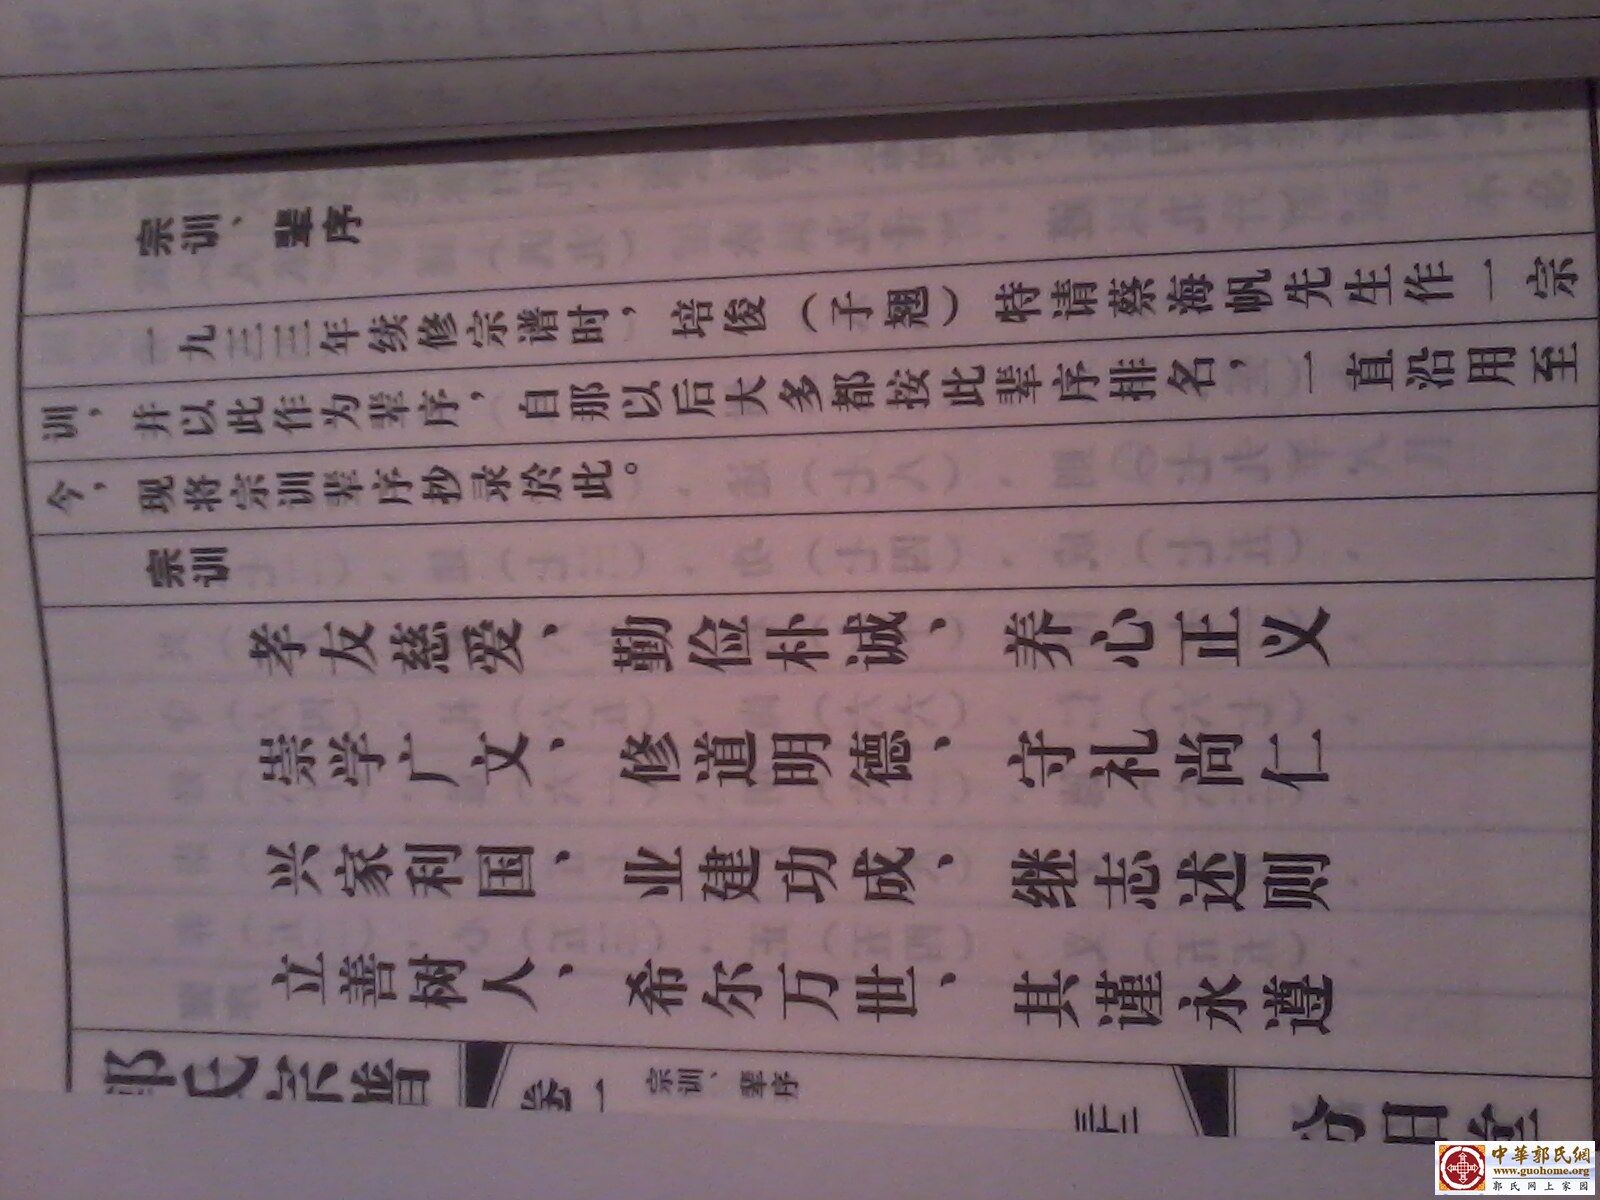 宗训、辈序
一九三三年续修宗谱时，培俊（子翘）特请蔡海帆先生作一宗
训，并以此作为辈序，自那以后大多都按此辈序排名，一直沿用至
今，现将宗训辈序抄录於此。
宗训
孝友慈爱、勤俭朴诚、养心正义
崇学广文、修道明德、守礼尚仁
兴家利国、业建功成、继志述则
立善树人、希尔万世、其谨永遵
郭氏宗谱
卷一
宗训、辈序
中華郭氏網
www.guohome.org
郭氏网上家园